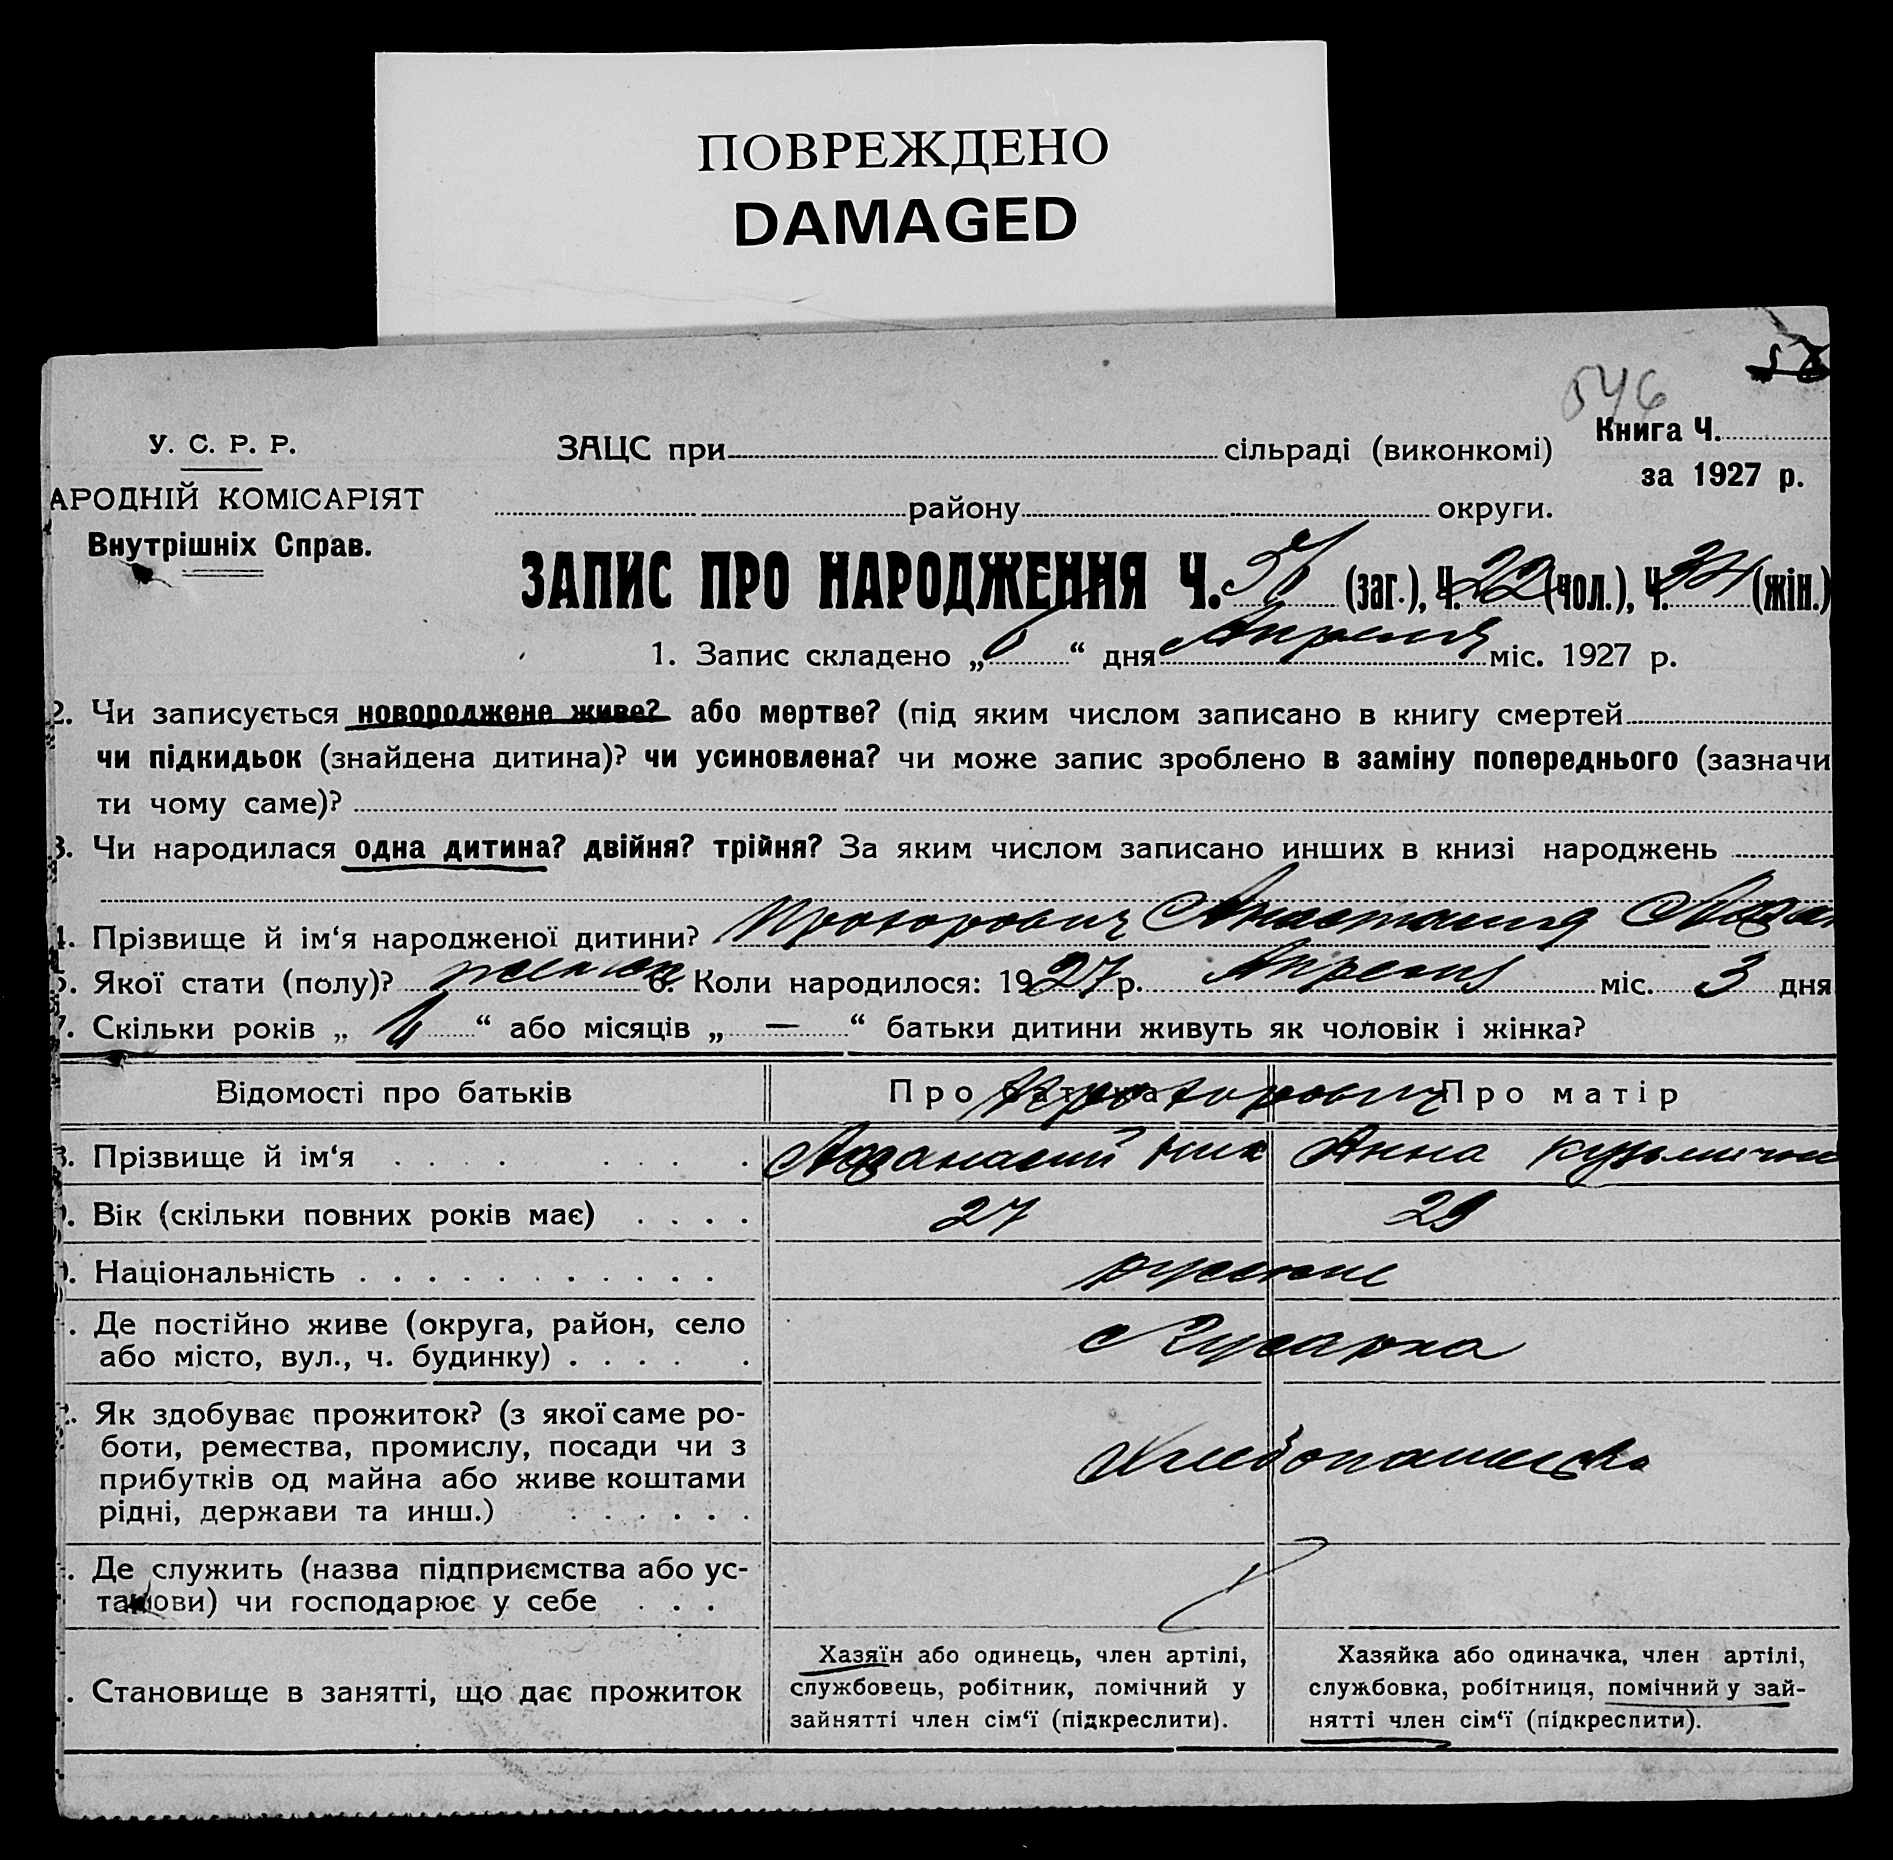 ПОВРЕЖДЕНО
DAMAGED
546
У. С. Р. Р.
ЗАЦС при сільраді (виконкомі)
Книга Ч.
за 1927 р.
АРОДНІЙ КОМІСАРІЯТ
району округи.
Внутрішніх Справ.
ЗАПИС ПРО НАРОДЖЕННЯ Ч. (заг.), Ч. 22 (чол.), Ч. (жін.)
1. Запис складено „ “ дня Апреля міс. 1927 р.
2. Чи записується новороджене живе? або мертве? (під яким числом записано в книгу смертей
чи підкидьок (знайдена дитина)? чи усиновлена? чи може запис зроблено в заміну попереднього (зазначи
ти чому саме)?
3. Чи народилася одна дитина? двійня? трійня? За яким числом записано инших в книзі народжень
4. Прізвище й ім‘я народженої дитини? Анастасия
5. Якої стати (полу)? женск 6. Коли народилося: 1927 р. Апреля міс. 3 дня
7. Скільки років „ “ або місяців „ — “ батьки дитини живуть як чоловік і жінка?
Відомості про батьків Про батька Про матір
8. Прізвище й ім‘я Афанасий Ник Анна Кузьминична
9. Вік (скільки повних років має) 27 29
. Національність русские
. Де постійно живе (округа, район, село
або місто, вул., ч. будинку)
. Як здобуває прожиток? (з якої саме ро-
боти, ремества, промислу, посади чи з
прибутків од майна або живе коштами
рідні, держави та инш.)
Хлебопашество
. Де служить (назва підприємства або ус-
танови) чи господарює у себе
. Становище в занятті, що дає прожиток
Хазяїн або одинець, член артілі,
службовець, робітник, помічний у
зайнятті член сім‘ї (підкреслити).
Хазяйка або одиначка, член артілі,
службовка, робітниця, помічний у зай-
нятті член сім‘ї (підкреслити).